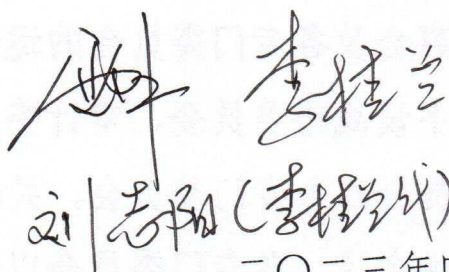 李桂兰
刘志阳(李桂兰代)
二〇二三年